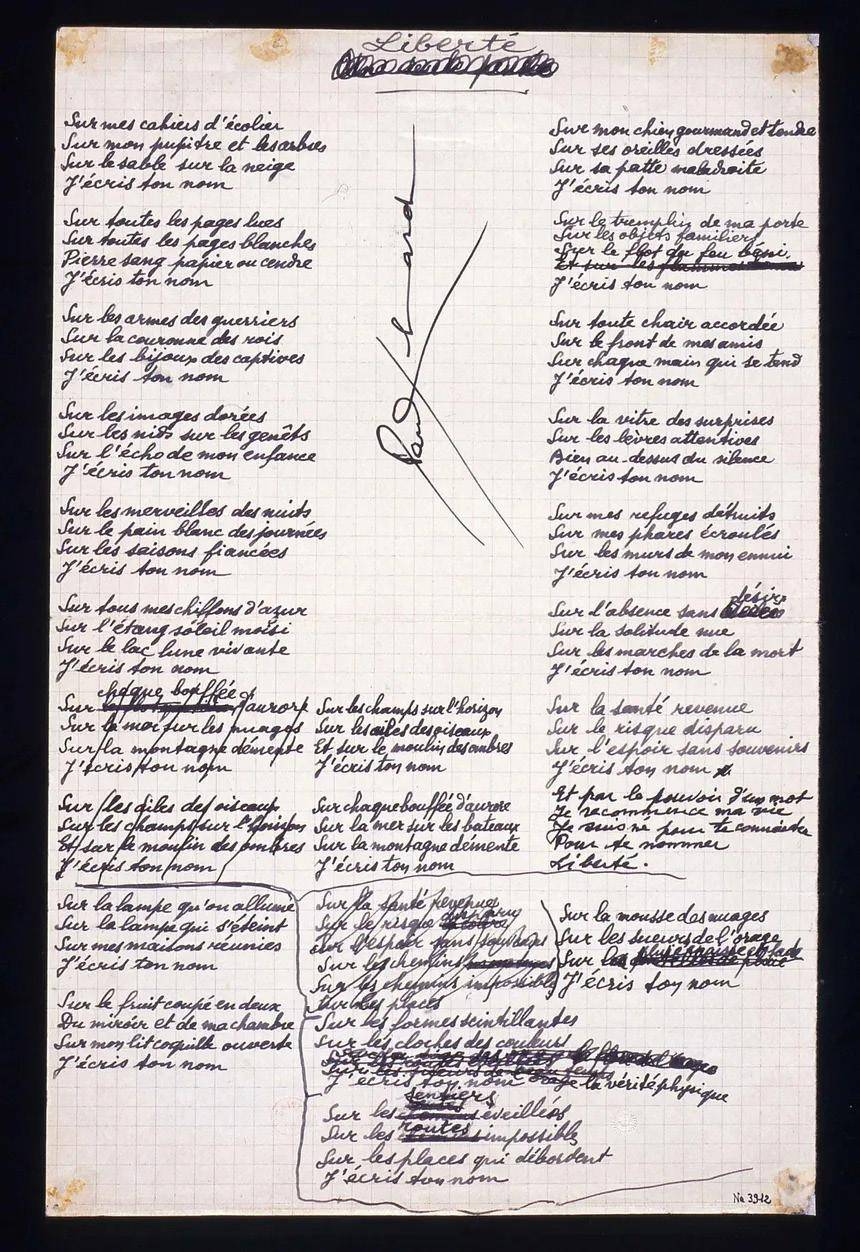 Liberté
Sur mes cahiers d'écolier
Sur mon pupitre et les arbres
Sur le sable sur la neige
J'écris ton nom
Sur toutes les pages lues
Sur toutes les pages blanches
Pierre sang papier ou cendre
J'écris ton nom
Sur les armes des guerriers
Sur la couronne des rois
Sur les bijoux des captives
J'écris ton nom
Sur les images dorées
Sur les nids sur les genêts
Sur l'écho de mon enfance
J'écris ton nom
Sur les merveilles des nuits
Sur le pain blanc des journées
Sur les saisons fiancées
J'écris ton nom
Sur tous mes chiffons d'azur
Sur l'étang soleil moisi
Sur le lac lune vivante
J'écris ton nom
chaque bouffée
Sur d'aurore
Sur la mer sur les nuages
Sur la montagne démente
J'écris ton nom
Sur les ailes des oiseaux
Sur les champs sur l'horizon
Et sur le moulin des ombres
J'écris ton nom
Sur la lampe qu'on allume
Sur la lampe qui s'éteint
Sur mes maisons réunies
J'écris ton nom
Sur le fruit coupé en deux
Du miroir et de ma chambre
Sur mon lit coquille ouverte
J'écris ton nom
Paul Eluard
Sur les champs sur l'horizon
Sur les ailes des oiseaux
Et sur le moulin des ombres
J'écris ton nom
Sur chaque bouffée d'aurore
Sur la mer sur les bateaux
Sur la montagne démente
J'écris ton nom
Sur la santé revenue
Sur le risque disparu
Sur l'espoir sans souvenirs
Sur les chemins
Sur les chemins impossibles
Sur les places
Sur les formes scintillantes
Sur les cloches des couleurs
J'écris ton nom
la vérité physique
sentiers
Sur les éveillés
routes
Sur les impossibles
Sur les places qui débordent
J'écris ton nom
Sur mon chien gourmand et tendre
Sur ses oreilles dressées
Sur sa patte maladroite
J'écris ton nom
Sur le tremplin de ma porte
Sur les objets familiers
Sur le flot du feu béni
Et sur les
J'écris ton nom
Sur toute chair accordée
Sur le front de mes amis
Sur chaque main qui se tend
J'écris ton nom
Sur la vitre des surprises
Sur les lèvres attentives
Bien au-dessus du silence
J'écris ton nom
Sur mes refuges détruits
Sur mes phares écroulés
Sur les murs de mon ennui
J'écris ton nom
désirs
Sur l'absence sans
Sur la solitude nue
Sur les marches de la mort
J'écris ton nom
Sur la santé revenue
Sur le risque disparu
Sur l'espoir sans souvenirs
J'écris ton nom
Et par le pouvoir d'un mot
Je recommence ma vie
Je suis né pour te connaître
Pour te nommer
Liberté.
Sur la mousse des nuages
Sur les sueurs de l'orage
Sur la pluie épaisse et fade
J'écris ton nom
No 3912